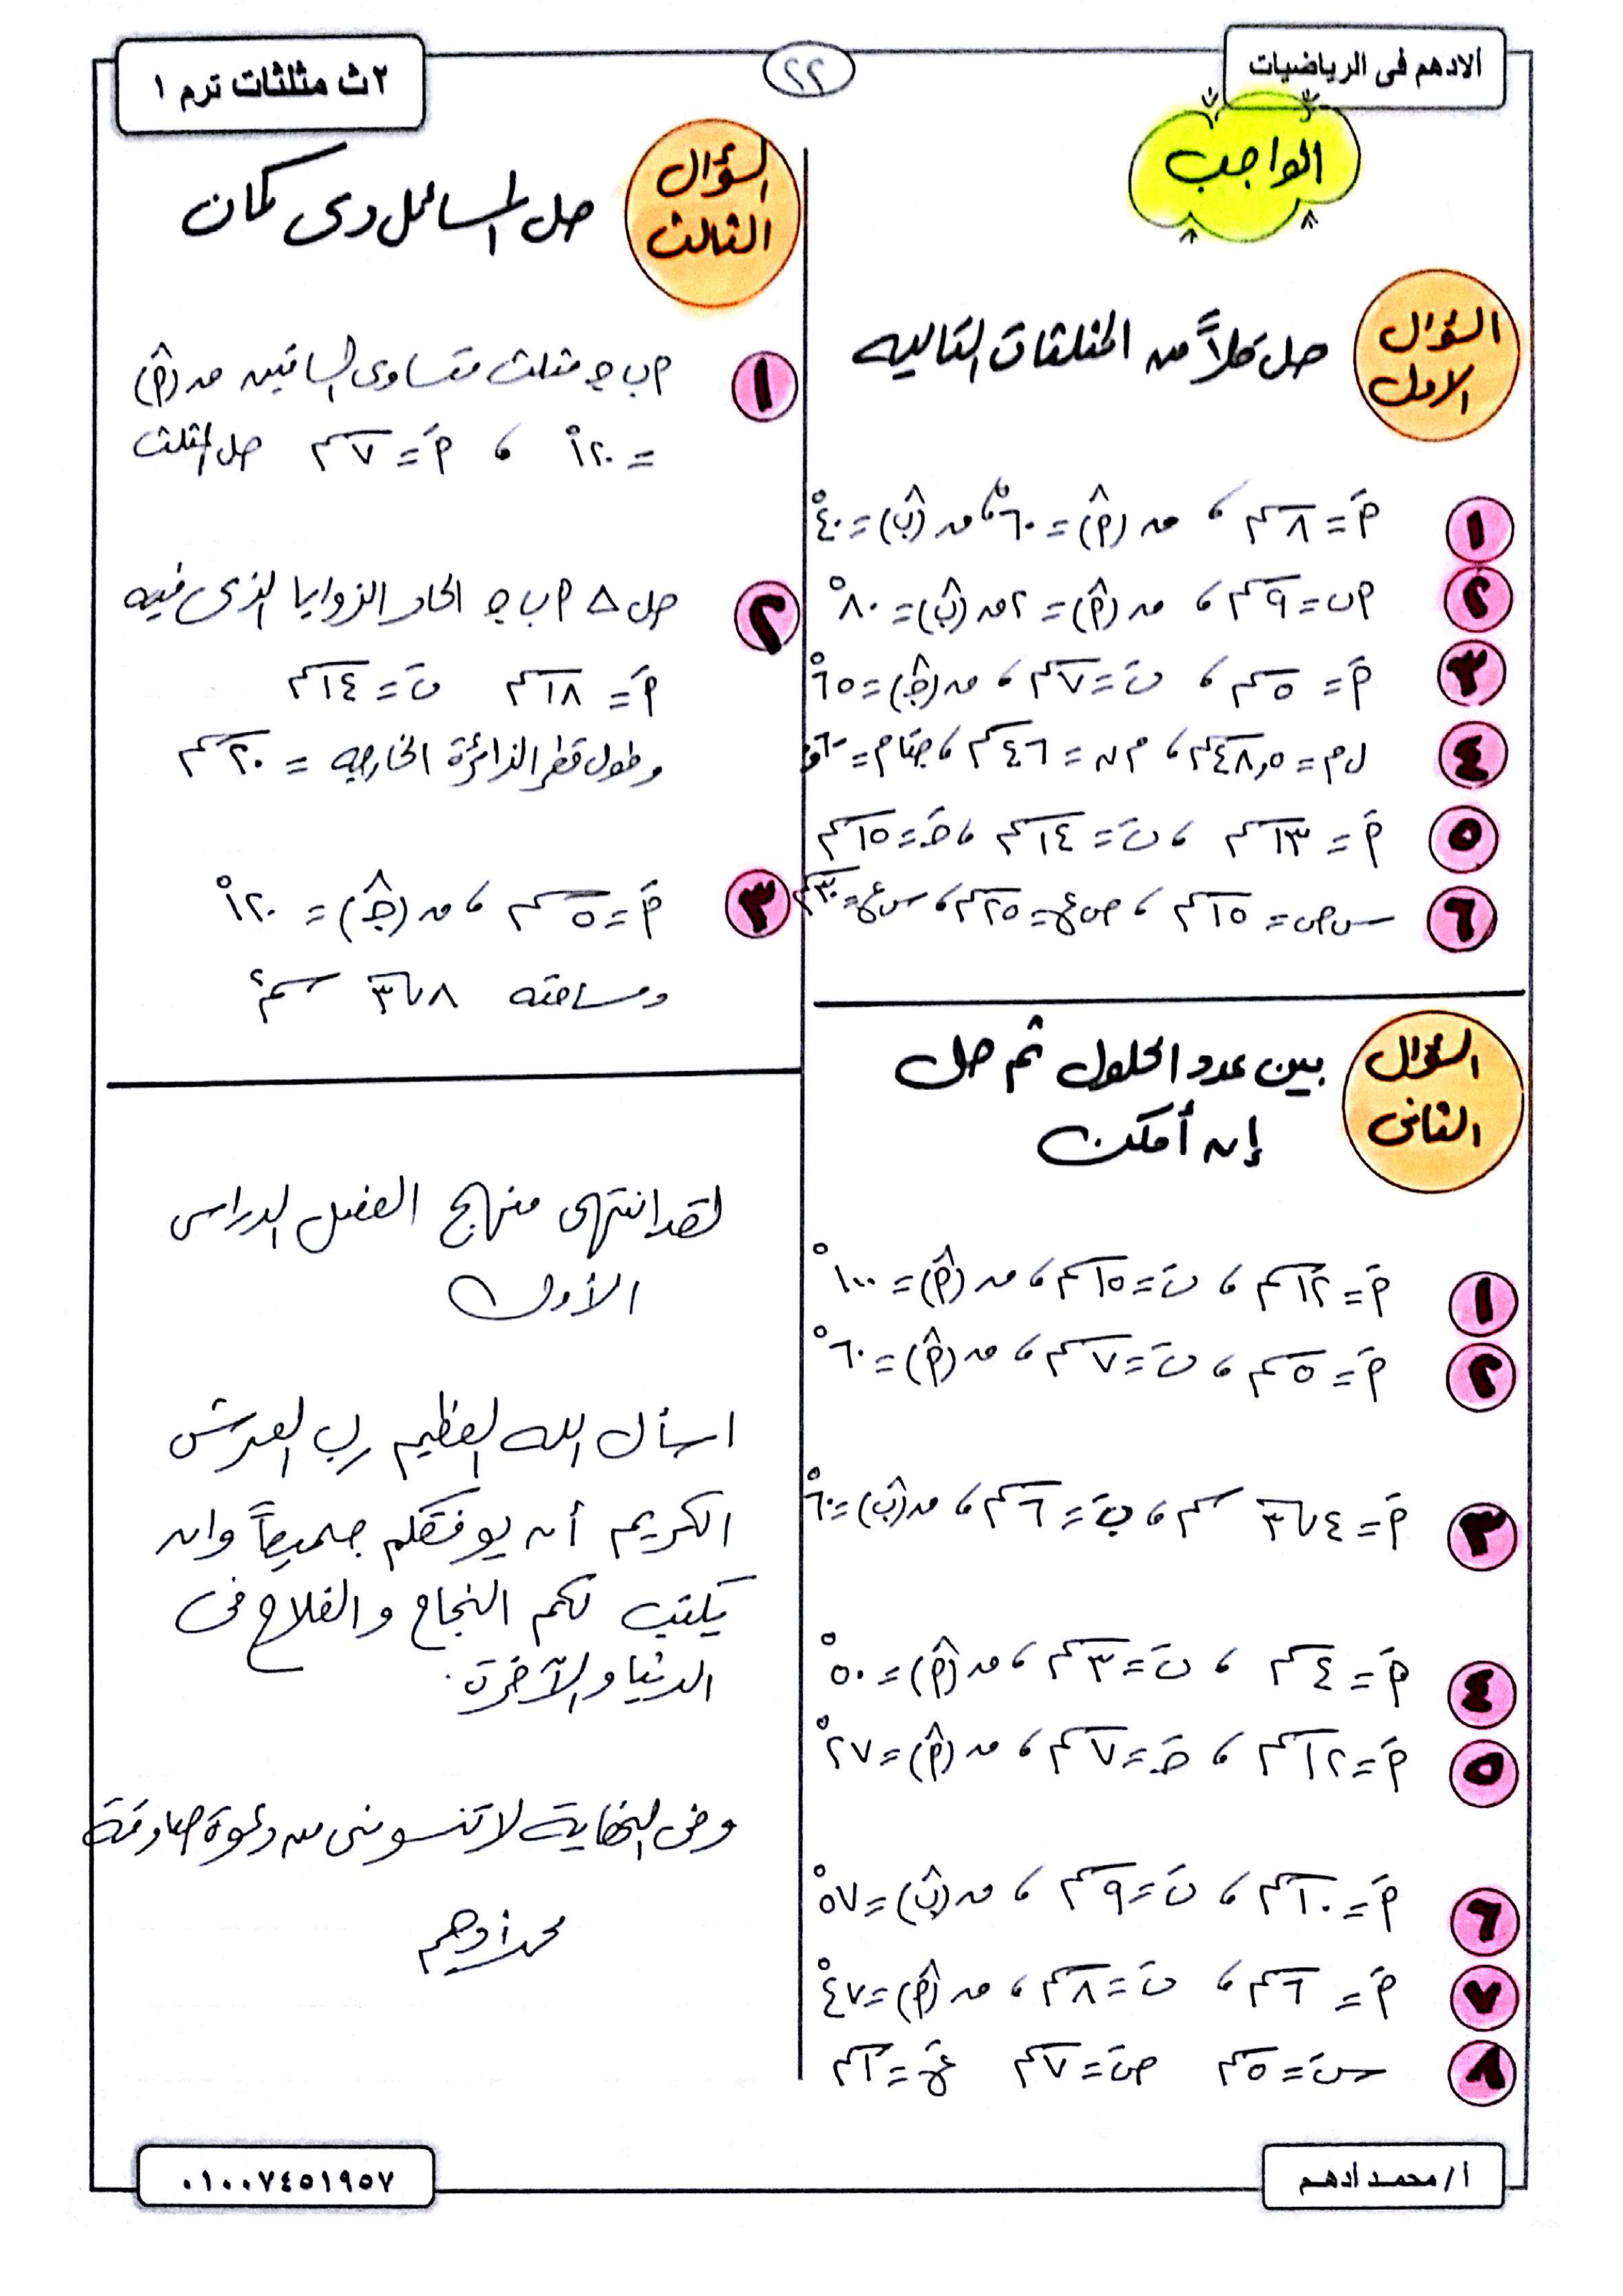 ألادهم فى الرياضيات
٢٢
٢ث مثلثات ترم ١
الواجب
السؤال الاول
حل كلاً من المثلثات التاليه
١ أَ = ٨ سم ، ق (أ̂) = ٦٠° ، ق (ب̂) = ٤٠°
٢ أب = ٩ سم ، ق (أ̂) = ٢ ق (ب̂) = ٨٠°
٣ أَ = ٥ سم ، بَ = ٧ سم ، ق (جـ̂) = ٦٥°
٤ ل م = ٤٨,٥ سم ، م ن = ٤٦ سم ، جتا م =
٥ أَ = ١٣ سم ، بَ = ١٤ سم ، جـَ = ١٥ سم
٦ س ص = ١٥ سم ، ص ع = ٢٥ سم ، س ع = ٣٠ سم
السؤال الثانى
بين عدد الحلول ثم حل
إن أمكن
١ أَ = ١٢ سم ، بَ = ١٥ سم ، ق (أ̂) = ١٠٠°
٢ أَ = ٥ سم ، بَ = ٧ سم ، ق (أ̂) = ٦٠°
٣ أَ = ٤√٣ سم ، بَ = ٦ سم ، ق (ب̂) = ٦٠°
٤ أَ = ٤ سم ، بَ = ٣ سم ، ق (أ̂) = ٥٠°
٥ أَ = ١٢ سم ، جـَ = ٧ سم ، ق (أ̂) = ٢٧°
٦ أَ = ١٠ سم ، بَ = ٩ سم ، ق (ب̂) = ٥٧°
٧ أَ = ٦ سم ، بَ = ٨ سم ، ق (أ̂) = ٤٧°
٨ سَ = ٥ سم صَ = ٧ سم عَ =
السؤال الثالث
حل المسائل دى كمان
١ أ ب جـ مثلث متساوى الساقين ق (أ̂)
= ١٢٠° ، أَ = ٧ سم حل المثلث
٢ حل △ أ ب جـ الحاد الزوايا الذى فيه
أَ = ١٨ سم بَ = ١٤ سم
وطول قطر الدائرة الخارجه = ٢٠ سم
٣ أَ = ٥ سم ، ق (جـ̂) = ١٢٠°
ومساحته ٨√٣ سم٢
لقد انتهى منهج الفصل الدراسى
الأول
اسأل الله العظيم رب العرش
الكريم أن يوفقكم جميعاً وان
يكتب لكم النجاح والفلاح فى
الدنيا والآخرة.
وفى النهاية لا تنسونى من دعوة صادقة
محمد أدهم
أ/ محمد أدهم
٠١٠٠٧٤٥١٩٥٧